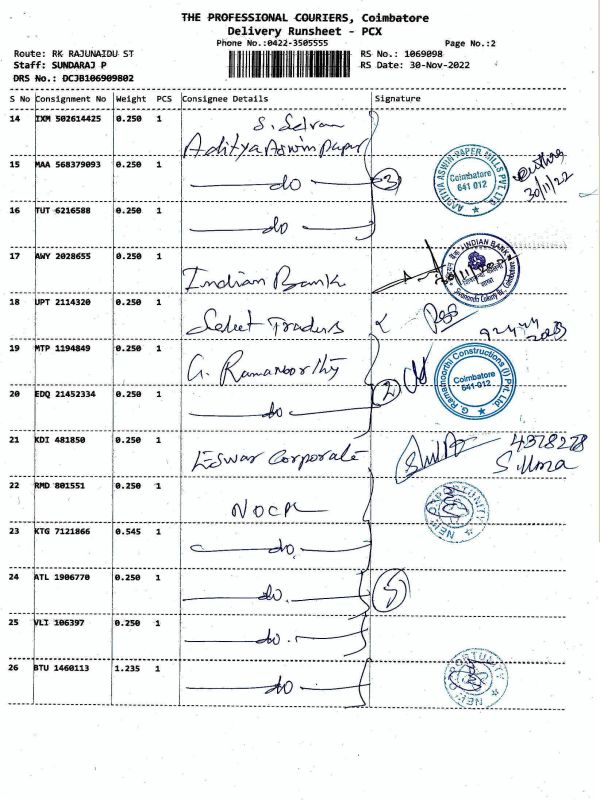 THE PROFESSIONAL COURIERS, Coimbatore
Delivery Runsheet - PCX
Phone No.:0422-3505555 Page No.:2
Route: RK RAJUNAIDU ST RS No.: 1069098
Staff: SUNDARAJ P RS Date: 30-Nov-2022
DRS No.: DCJB106909802
S No Consignment No Weight PCS Consignee Details Signature
14 IXM 502614425 0.250 1 S. Selvan
Aditya Aswin Paper
15 MAA 568379093 0.250 1 do 3
AADITYA ASWIN PAPER MILLS PVT. LTD.
Coimbatore
641 012
30/11/22
16 TUT 6216588 0.250 1 do
17 AWY 2028655 0.250 1 Indian Bank
INDIAN BANK
18 UPT 2114320 0.250 1 Select Traders
19 MTP 1194849 0.250 1 G. Ramamoorthy
G. Ramamoorthi Constructions (I) Pvt. Ltd.
Coimbatore
641-012
20 EDQ 21452334 0.250 1 do 2
21 KDI 481850 0.250 1 Eswar Corporate
4378278
S. Uma
22 RMD 801551 0.250 1 NOCR
NEW OPPORTUNITY
23 KTG 7121866 0.545 1 do.
24 ATL 1906770 0.250 1 do. 5
25 VLI 106397 0.250 1 do.
26 BTU 1460113 1.235 1 do
NEW OPPORTUNITY